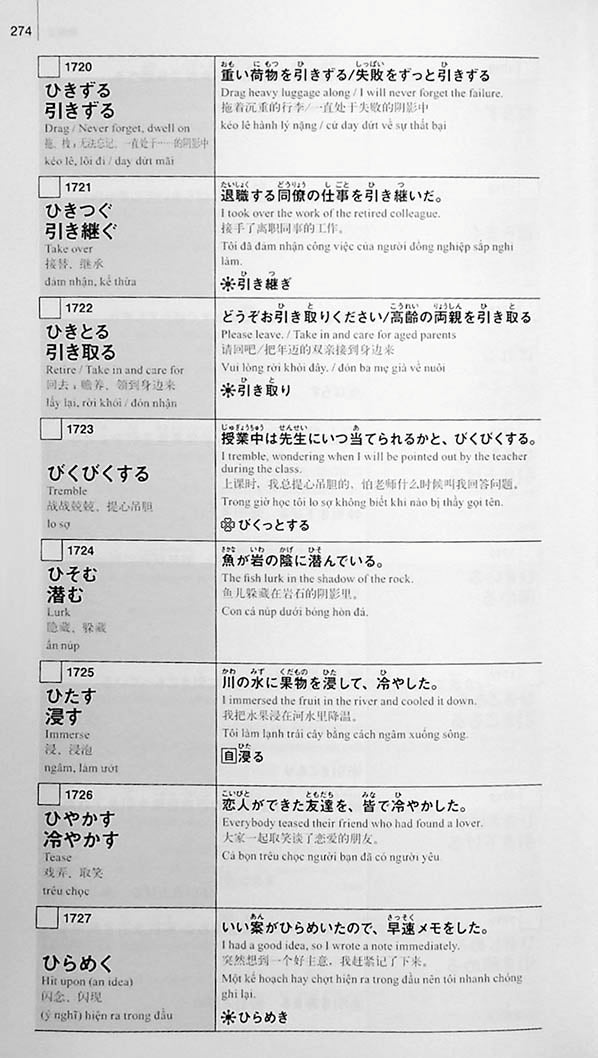 274
1720
ひきずる
引きずる
Drag / Never forget, dwell on
拖、拽；无法忘记、一直处于……的阴影中
kéo lê, lôi đi / day dứt mãi
おも にもつ ひ しっぱい ひ
重い荷物を引きずる/失敗をずっと引きずる
Drag heavy luggage along / I will never forget the failure.
拖着沉重的行李/一直处于失败的阴影中
kéo lê hành lý nặng / cứ day dứt về sự thất bại
1721
ひきつぐ
引き継ぐ
Take over
接替、继承
đảm nhận, kế thừa
たいしょく どうりょう しごと ひ つ
退職する同僚の仕事を引き継いだ。
I took over the work of the retired colleague.
接手了离职同事的工作。
Tôi đã đảm nhận công việc của người đồng nghiệp sắp nghỉ
làm.
ひ つ
引き継ぎ
1722
ひきとる
引き取る
Retire / Take in and care for
回去；赡养、领到身边来
lấy lại, rời khỏi / đón nhận
ひ と こうれい りょうしん ひ と
どうぞお引き取りください/高齢の両親を引き取る
Please leave. / Take in and care for aged parents
请回吧/把年迈的双亲接到身边来
Vui lòng rời khỏi đây. / đón ba mẹ già về nuôi
ひ と
引き取り
1723
びくびくする
Tremble
战战兢兢、提心吊胆
lo sợ
じゅぎょうちゅう せんせい あ
授業中は先生にいつ当てられるかと、びくびくする。
I tremble, wondering when I will be pointed out by the teacher
during the class.
上课时，我总提心吊胆的，怕老师什么时候叫我回答问题。
Trong giờ học tôi lo sợ không biết khi nào bị thầy gọi tên.
びくっとする
1724
ひそむ
潜む
Lurk
隐藏、躲藏
ẩn núp
さかな いわ かげ ひそ
魚が岩の陰に潜んでいる。
The fish lurk in the shadow of the rock.
鱼儿躲藏在岩石的阴影里。
Con cá núp dưới bóng hòn đá.
1725
ひたす
浸す
Immerse
浸、浸泡
ngâm, làm ướt
かわ みず くだもの ひた ひ
川の水に果物を浸して、冷やした。
I immersed the fruit in the river and cooled it down.
我把水果浸在河水里降温。
Tôi làm lạnh trái cây bằng cách ngâm xuống sông.
ひた
自浸る
1726
ひやかす
冷やかす
Tease
戏弄、取笑
trêu chọc
こいびと ともだち みな ひ
恋人ができた友達を、皆で冷やかした。
Everybody teased their friend who had found a lover.
大家一起取笑谈了恋爱的朋友。
Cả bọn trêu chọc người bạn đã có người yêu
1727
ひらめく
Hit upon (an idea)
闪念、闪现
(ý nghĩ) hiện ra trong đầu
あん さっそく
いい案がひらめいたので、早速メモをした。
I had a good idea, so I wrote a note immediately.
突然想到一个好主意，我赶紧记了下来。
Một kế hoạch hay chợt hiện ra trong đầu nên tôi nhanh chóng
ghi lại.
ひらめき